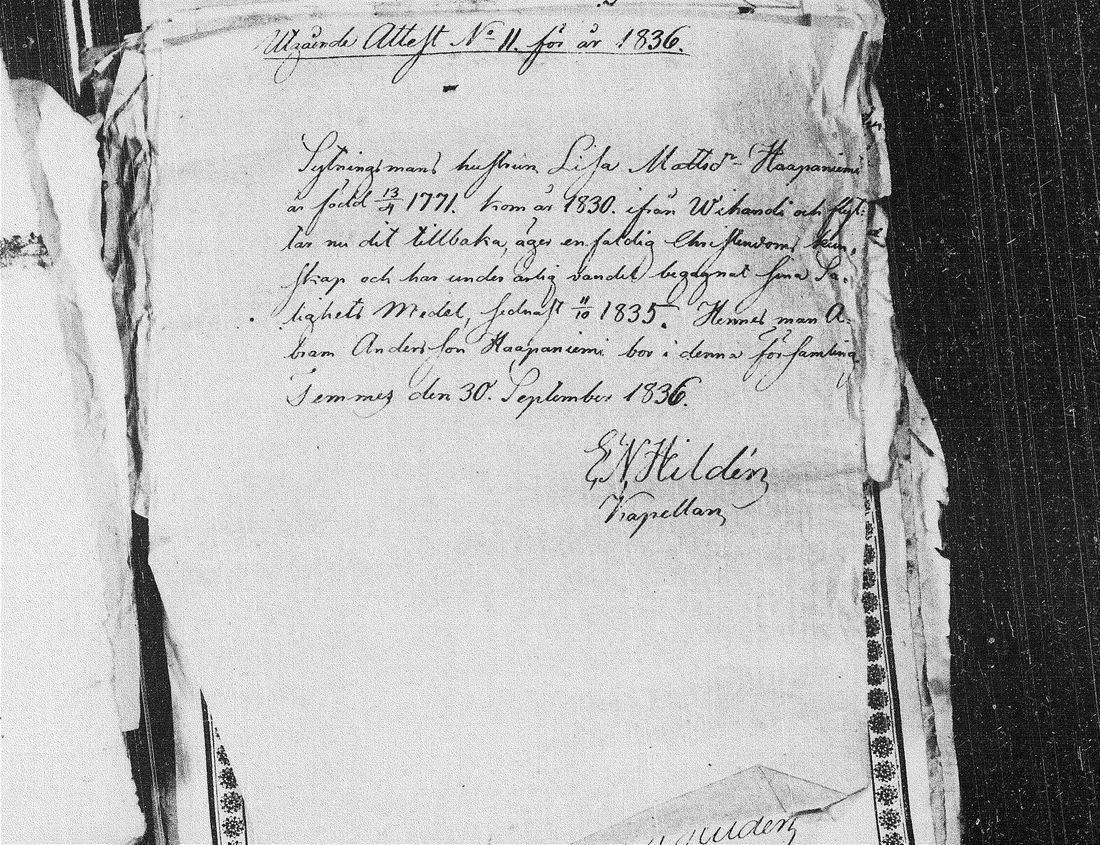 Utgående Attest No 11. för år 1836.
Sytningsmans hustrun Lisa Mattsdr Haapaniemi
är född 13/4 1771. kom år 1830. ifrån Wihandi och flyt-
tar nu dit tillbaka, äger enfaldig Christendoms kun-
skap och har under ärlig vandel begagnat sina Sa-
lighets Medel, sednast 11/10 1835. Hennes man A-
bram Andersson Haapaniemi bor i denna församling
Temmes den 30. September 1836.
E. N. Hildén
Kapellan